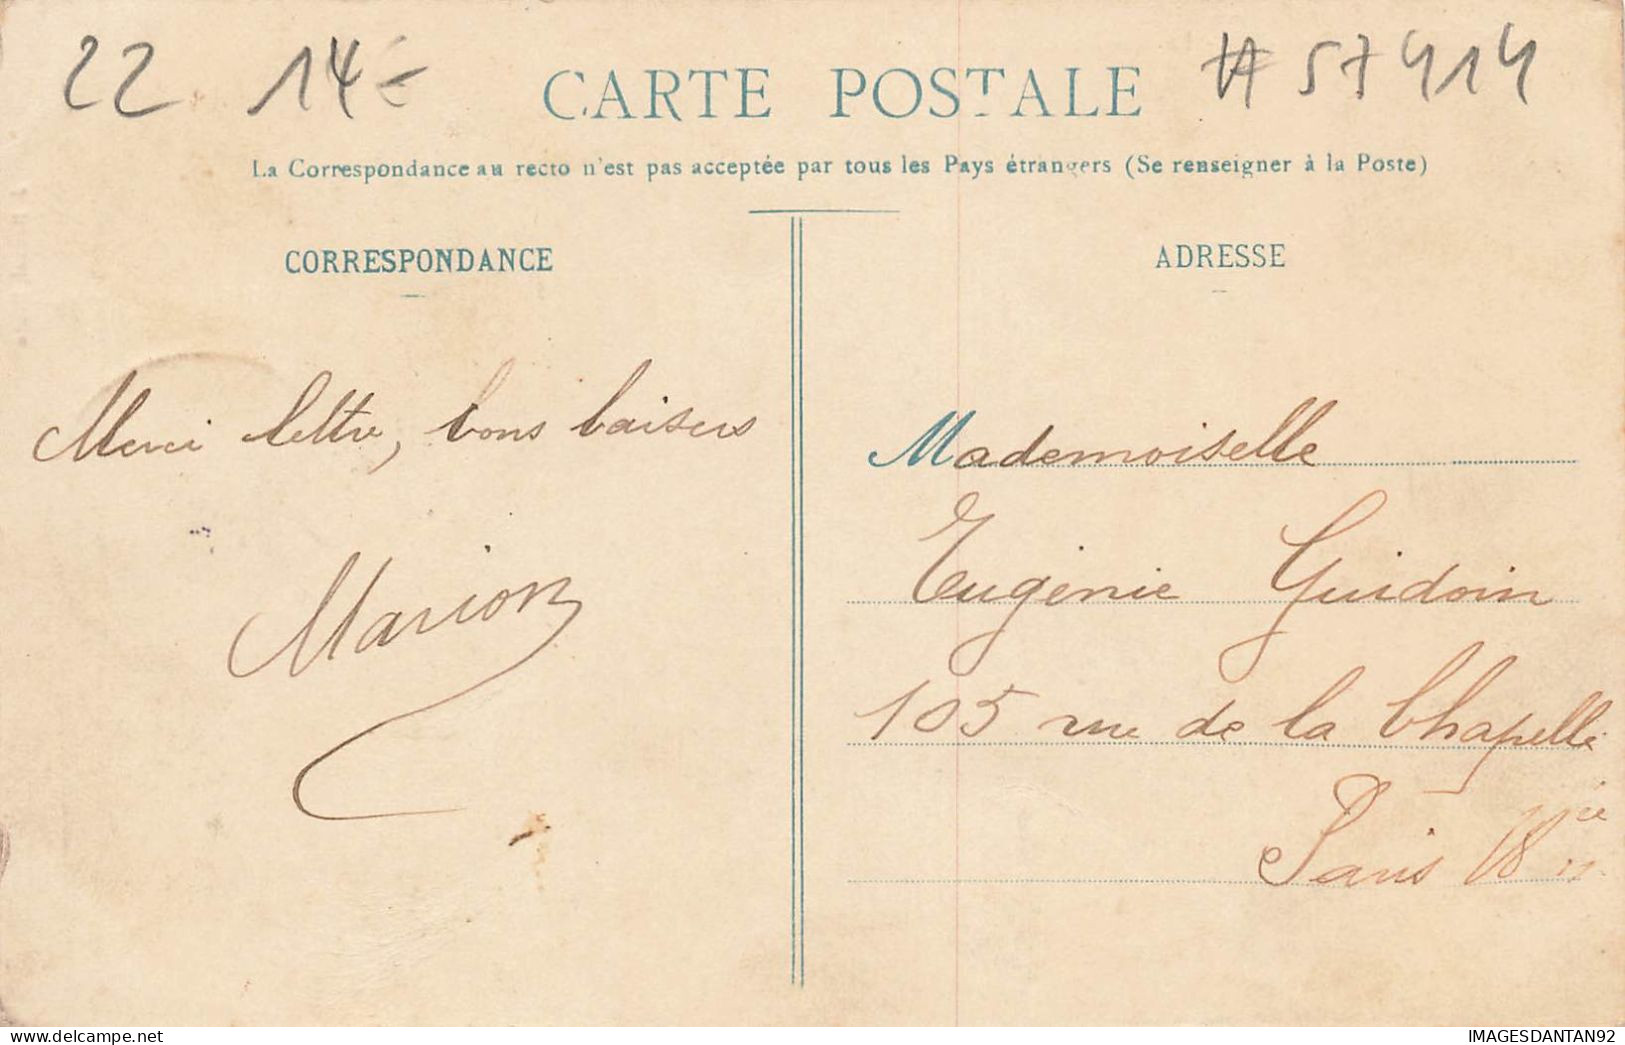 22 14€ CARTE POSTALE # 57414
La Correspondance au recto n'est pas acceptée par tous les Pays étrangers (Se renseigner à la Poste)
CORRESPONDANCE
Merci lettre, bons baisers
Marion
ADRESSE
Mademoiselle
Eugénie Guidoin
105 rue de la Chapelle
Paris 18
delcampe.net
IMAGESDANTAN92